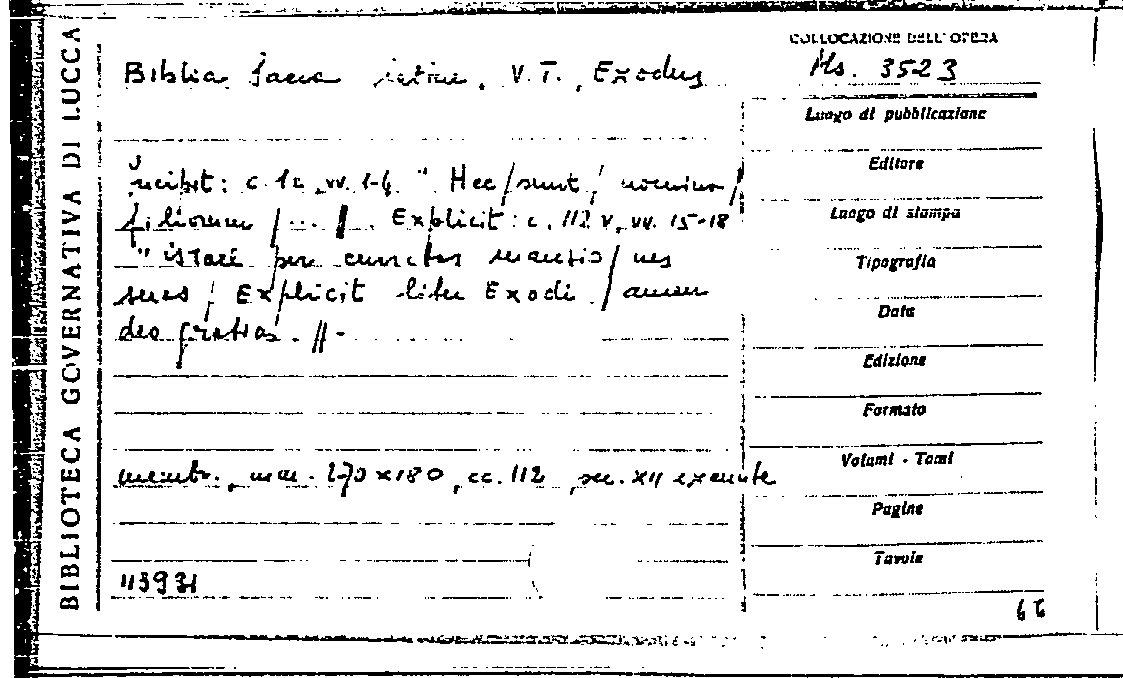 BIBLIOTECA GOVERNATIVA DI LUCCA
COLLOCAZIONE DELL'OPERA
Ms. 3523
Biblia Sacra latine, V.T., Exodus
Incipit: c. 1r, vv. 1-4 "Hec/sunt/nomina/
filiorum /... //. Explicit: c. 112 v, vv. 15-18
" per cunctas mansio/nes
suas / Explicit liber Exodi / amen
deo gratias. // -
membr., mm. 270 x 180, cc. 112, sec. XII exeunte
113931
Luogo di pubblicazione
Editore
Luogo di stampa
Tipografia
Data
Edizione
Formato
Volumi - Tomi
Pagine
Tavole